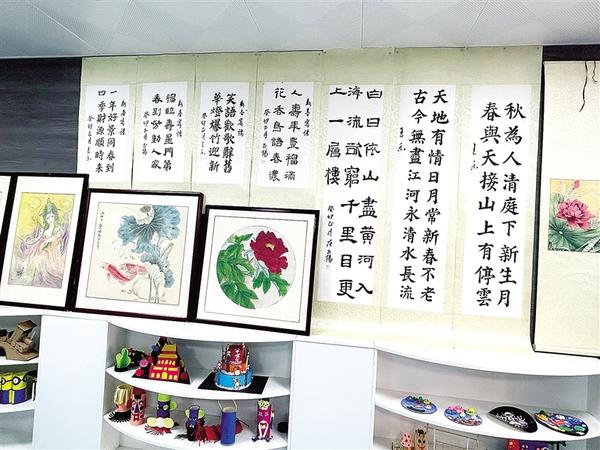 秋為人清庭下新生月
春與天接山上有停雲
天地有情日月常新春不老
古今無盡江河永清水長流
白日依山盡黃河入
海流欲窮千里目更
上一層樓
人壽年豐福滿
花香鳥語春濃
笑語歡歌辭舊
華燈爆竹迎新
福臨壽星門第
春到勞動人家
一年好景同春到
四季財源順時來